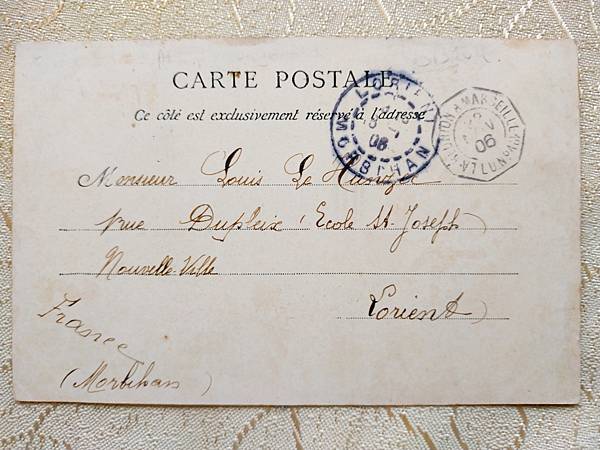 CARTE POSTALE
Ce côté est exclusivement réservé à l'adresse
LORIENT
MORBIHAN
06
LA RÉUNION A MARSEILLE
06
Monsieur Louis Le
rue Dupleix, Ecole St-Joseph
Nouvelle-Ville
Lorient
France
(Morbihan)